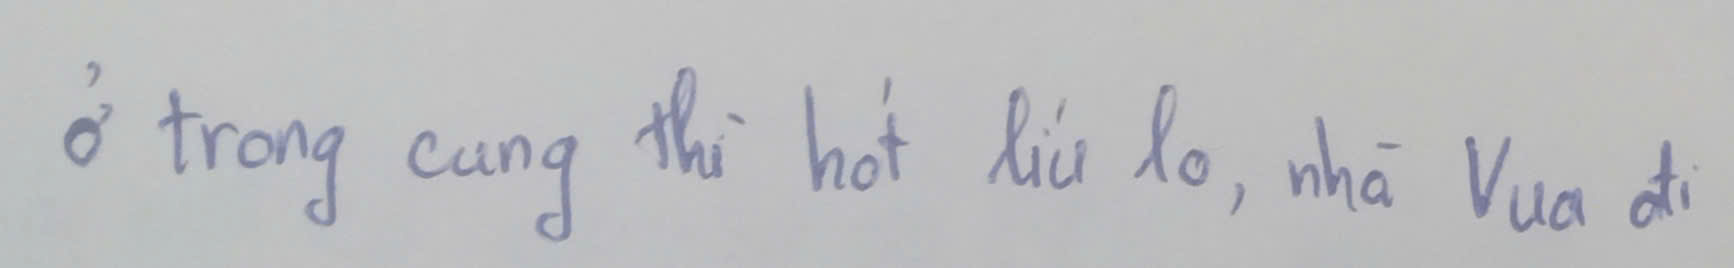 ở trong cung thì hót líu lo, nhà Vua đi